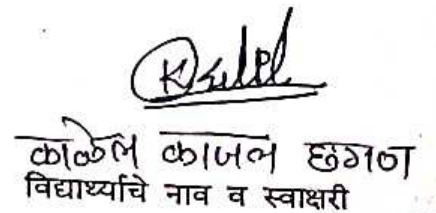 काळेल काजल छगण
विद्यार्थ्याचे नाव व स्वाक्षरी